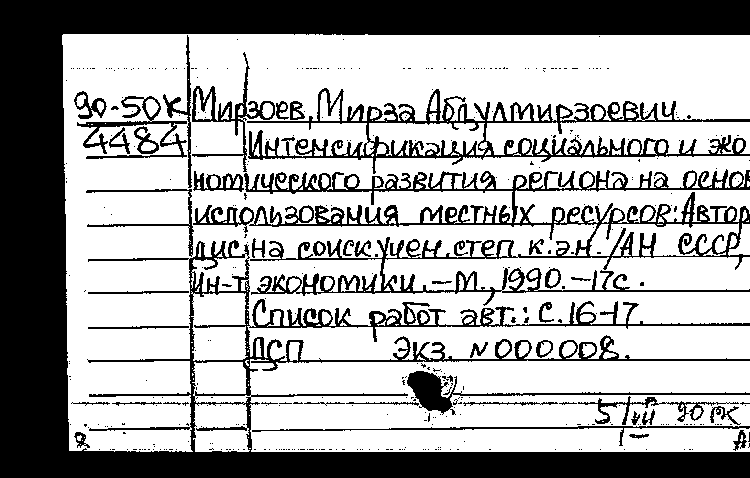 90-50К Мирзоев, Мирза Абдулмирзоевич.
4484 Интенсификация социального и эко
номического развития региона на основ
использования местных ресурсов: Автор
дис. на соиск. учен. степ. к.э.н. / АН СССР,
Ин-т экономики. – М., 1990. – 17с.
Список работ авт.: С. 16-17.
ДСП Экз. N000008.